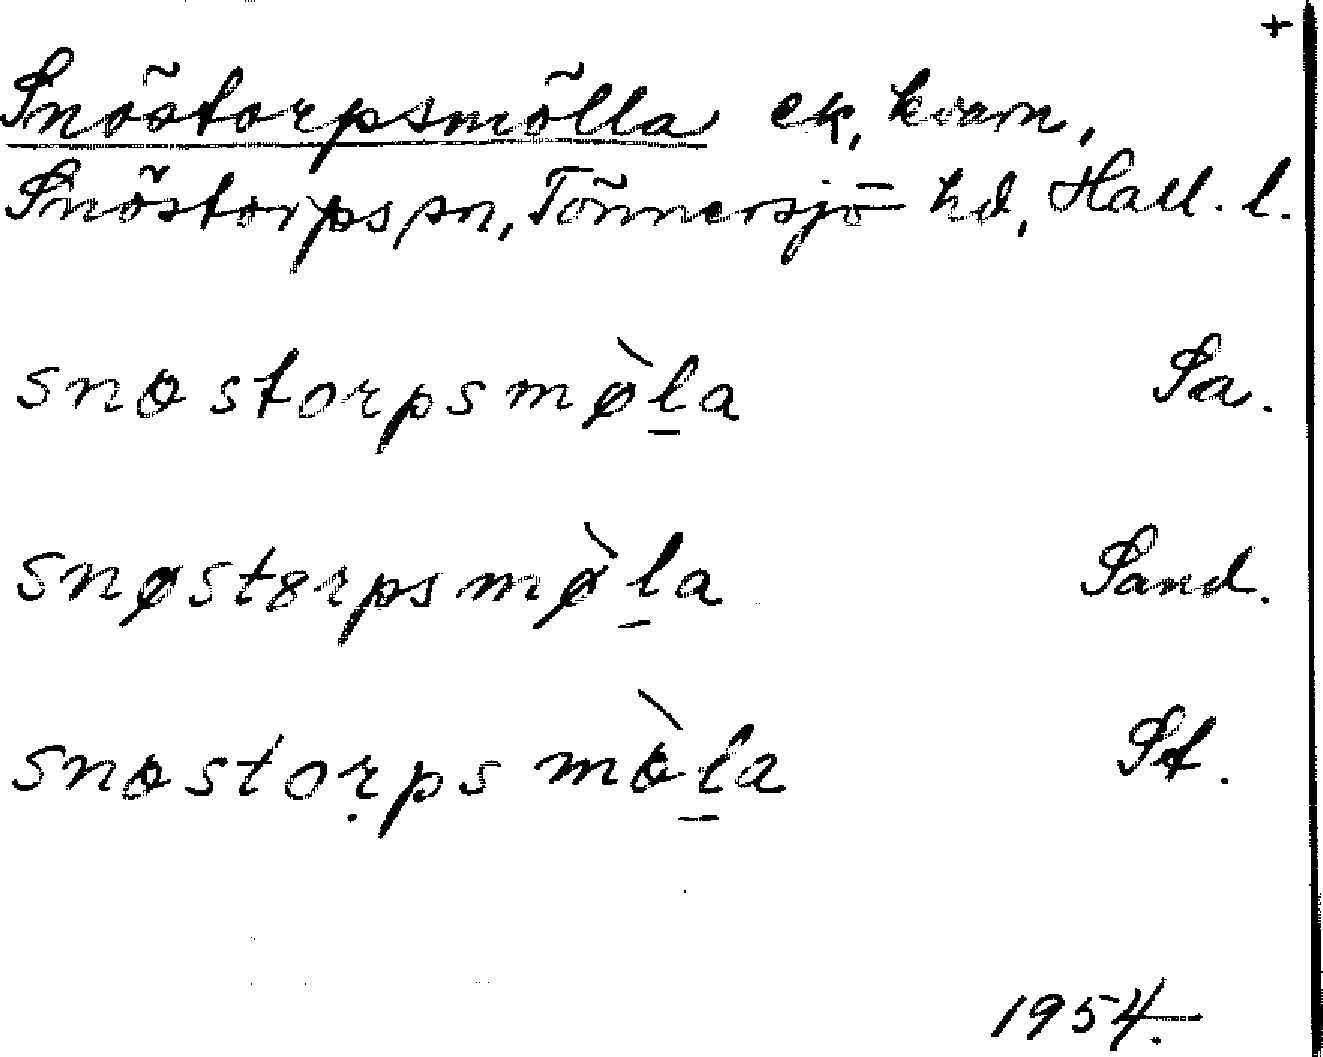 +
Snöstorpsmölla ek, kvarn,
Snöstorps sn, Tönnersjö hd, Hall. l.
snøstorpsmø̀l̠a Sa.
snøstørpsmø̀l̠a Sand.
snøstoṛpsmø̀l̠a St.
1954.